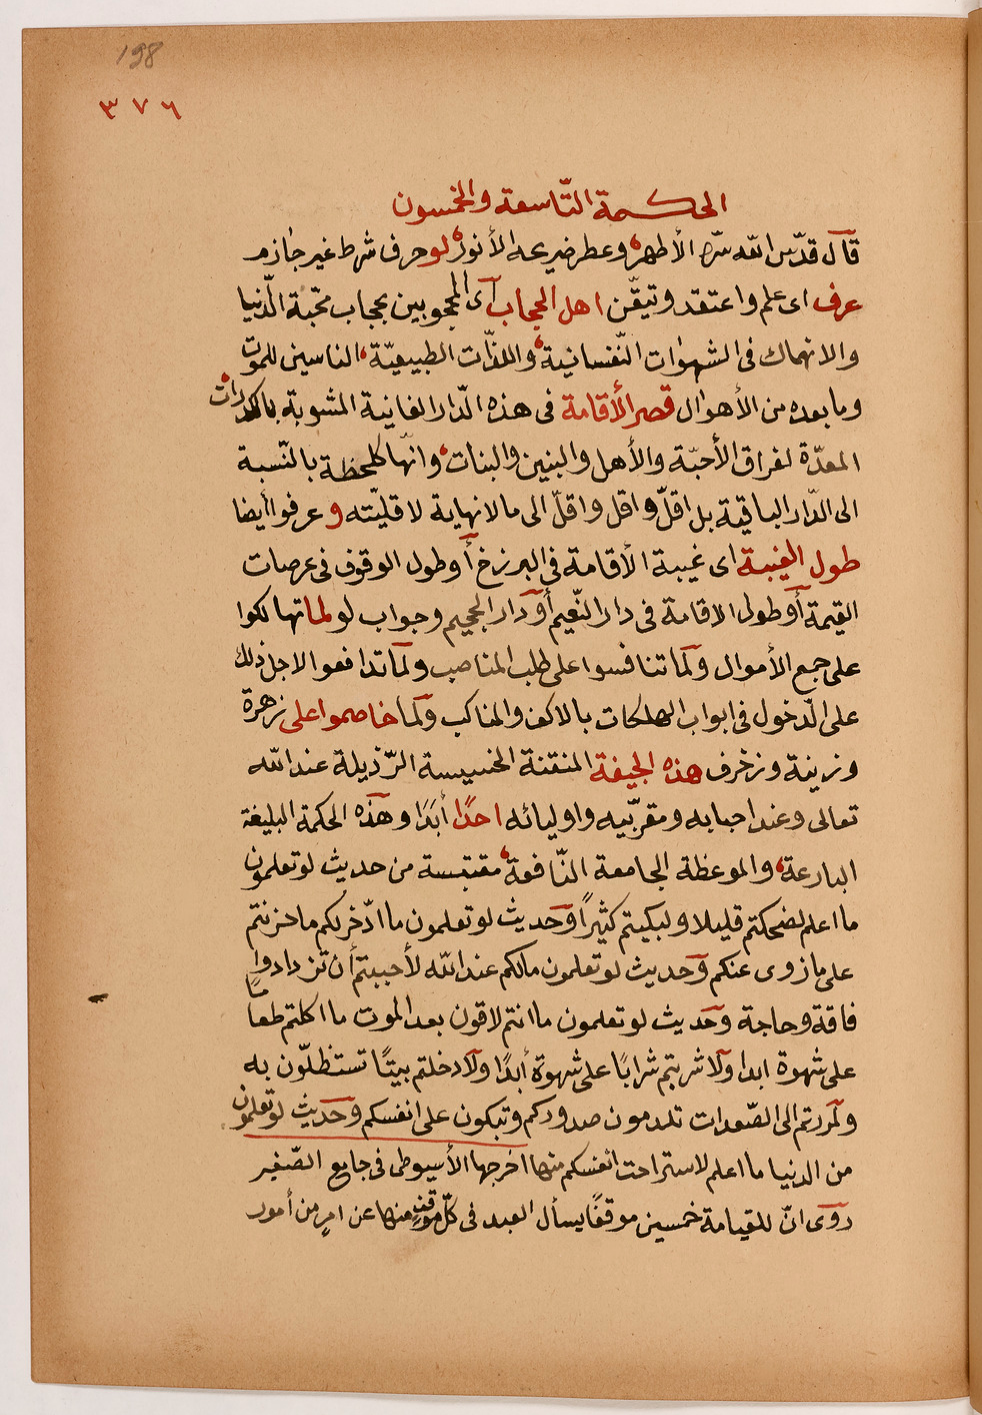 198
٣٧٦
الحكمة التّاسعة والخمسون
قآل قدّس اللّه سرّه الأطهر، وعطر ضريحه الأنور، لو حرف شرط غير جازم
عرف اى علم واعتقد وتيقّن اهل الحجاب آى المحجوبين بحجاب محّبة الدّنيا
والانهماك فى الشهوٰات النّفسانية، واللذّات الطبيعيّة، الناسين للموت
وما بعده من الأهوال قصر الأقامة فى هذه الدّار الفانية المشوبة بالكدرات،
المعدّة لفراق الأحبّة والأهل والبنين والبنات، وانّها كلحظة بالنّسبة
الى الدّار الباقية بل اقلّ و اقل و اقلّ الى مالانهاية لاقليّته و عرفوا أيضا
طول الغيبة اى غيبة الأقامة فى البرزخ أو طول الوقوف فى عرصات
القيمة أو طول الاقامة فى دار النّعيم أو دار الجحيم وجواب لو لما تهالكوا
على جمع الأموال ولما تنافسوا على طلب المناصب ولما تدافعوا لاجل ذلك
على الدّخول فى ابواب الهلكات بالاكف والمناكب ولما خاصموا على زهرة
وزينة وزخرف هذه الجيفة المنتنة الخسيسة الرّذيلة عند اللّه
تعالى وعند احبابه ومقرّبيه واوليائه احدًا أبدَا وهذه الحكمة البليغة
البارعة، والموعظة الجامعة النّافعة، مقتبسة من حديث لو تعلمون
ما اعلم لضحكتم قليلا ولبكيتم كثيرًا وحديث لو تعلمون ما ادّخر لكم ما حزنتم
على ما زوى عنكم وحديث لو تعلمون مالكم عند اللّه لأحببتم أن تزدادوا
فاقة وحاجة وحديث لو تعلمون ما انتم لاقون بعد الموت ما اكلتم طعامًا
على شهوة ابدا ولا شربتم شرابًا على شهوة أبدًا ولا دخلتم بيتًا تستظلّون به
ولمررتم الى الصّعدات تلدمون صدوركم وتبكون على انفسكم وحديث لو تعلمون
من الدنيا ما اعلم لاستراحت انفسكم منها اخرجها الأسيوطى فى جامع الصّغير
روى انّ للقيامة خمسين موقفًا يسأل العبد فى كلّ موقف منها عن امرٍ من أمور